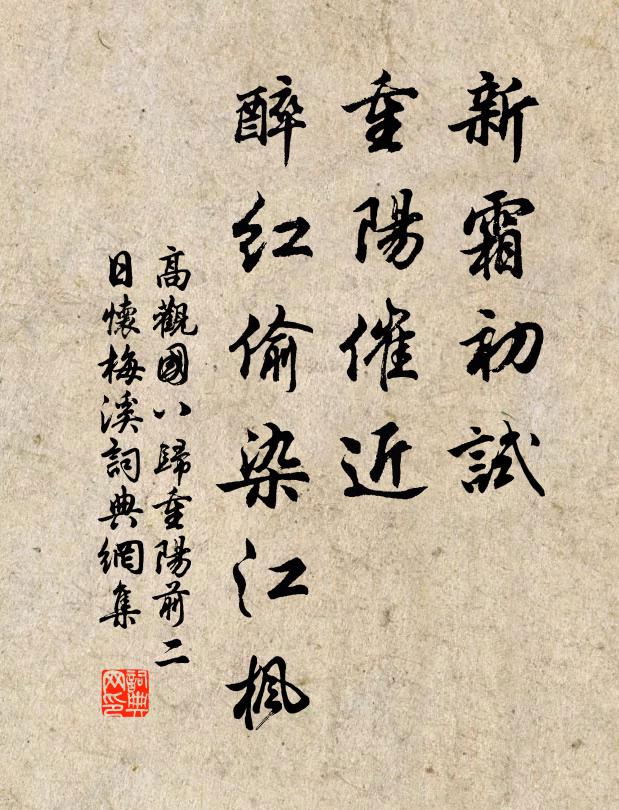 新霜初試
重陽催近
醉紅偷染江楓
高觀國八歸重陽前二
日懷梅溪詞典網集
詞典
网印